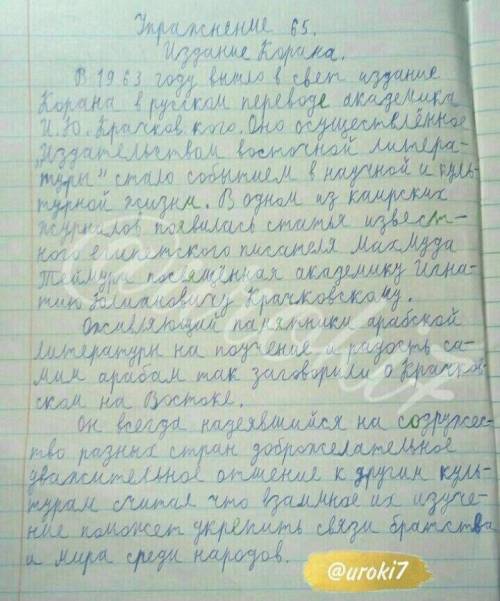 Упражнение 65.
Издание Корана.
В 1963 году вышло в свет издание
Корана в русском переводе академика
И.Ю. Крачков кого. Оно осуществлённое
„Издательством восточной литера-
туры" стало событием в научной и куль-
турной жизни. В одном из каирских
журналов появилась статья извест-
ного египетского писателя Махмуда
Теймура посвящённая академику Игна-
тию Юлиановичу Крачковскому.
Оживляющий памятники арабской
литературы на поучение и радость са-
мим арабам так заговорили о Крачков-
ском на Востоке.
Он всегда надеявшийся на содружес-
тво разных стран доброжелательное
уважительное отшение к другим куль-
турам считал что взаимное их изуче-
ние поможет укрепить связи братства
и мира среди народов.
@uroki7
@uroki7